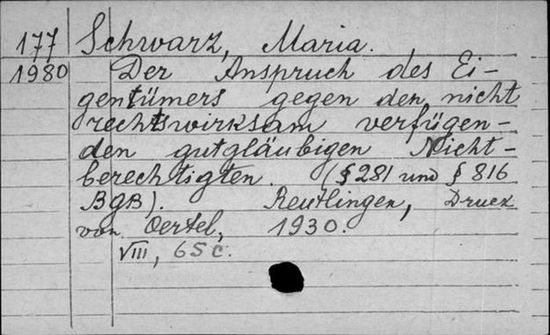 177 Schwarz, Maria.
1980 Der Anspruch des Ei-
gentümers gegen den nicht
rechtswirksam verfügen-
den gutgläubigen Nicht-
berechtigten. (§ 281 und § 816
BgB). Reutlingen, Druck
von Oertel, 1930.
VIII, 65 c.